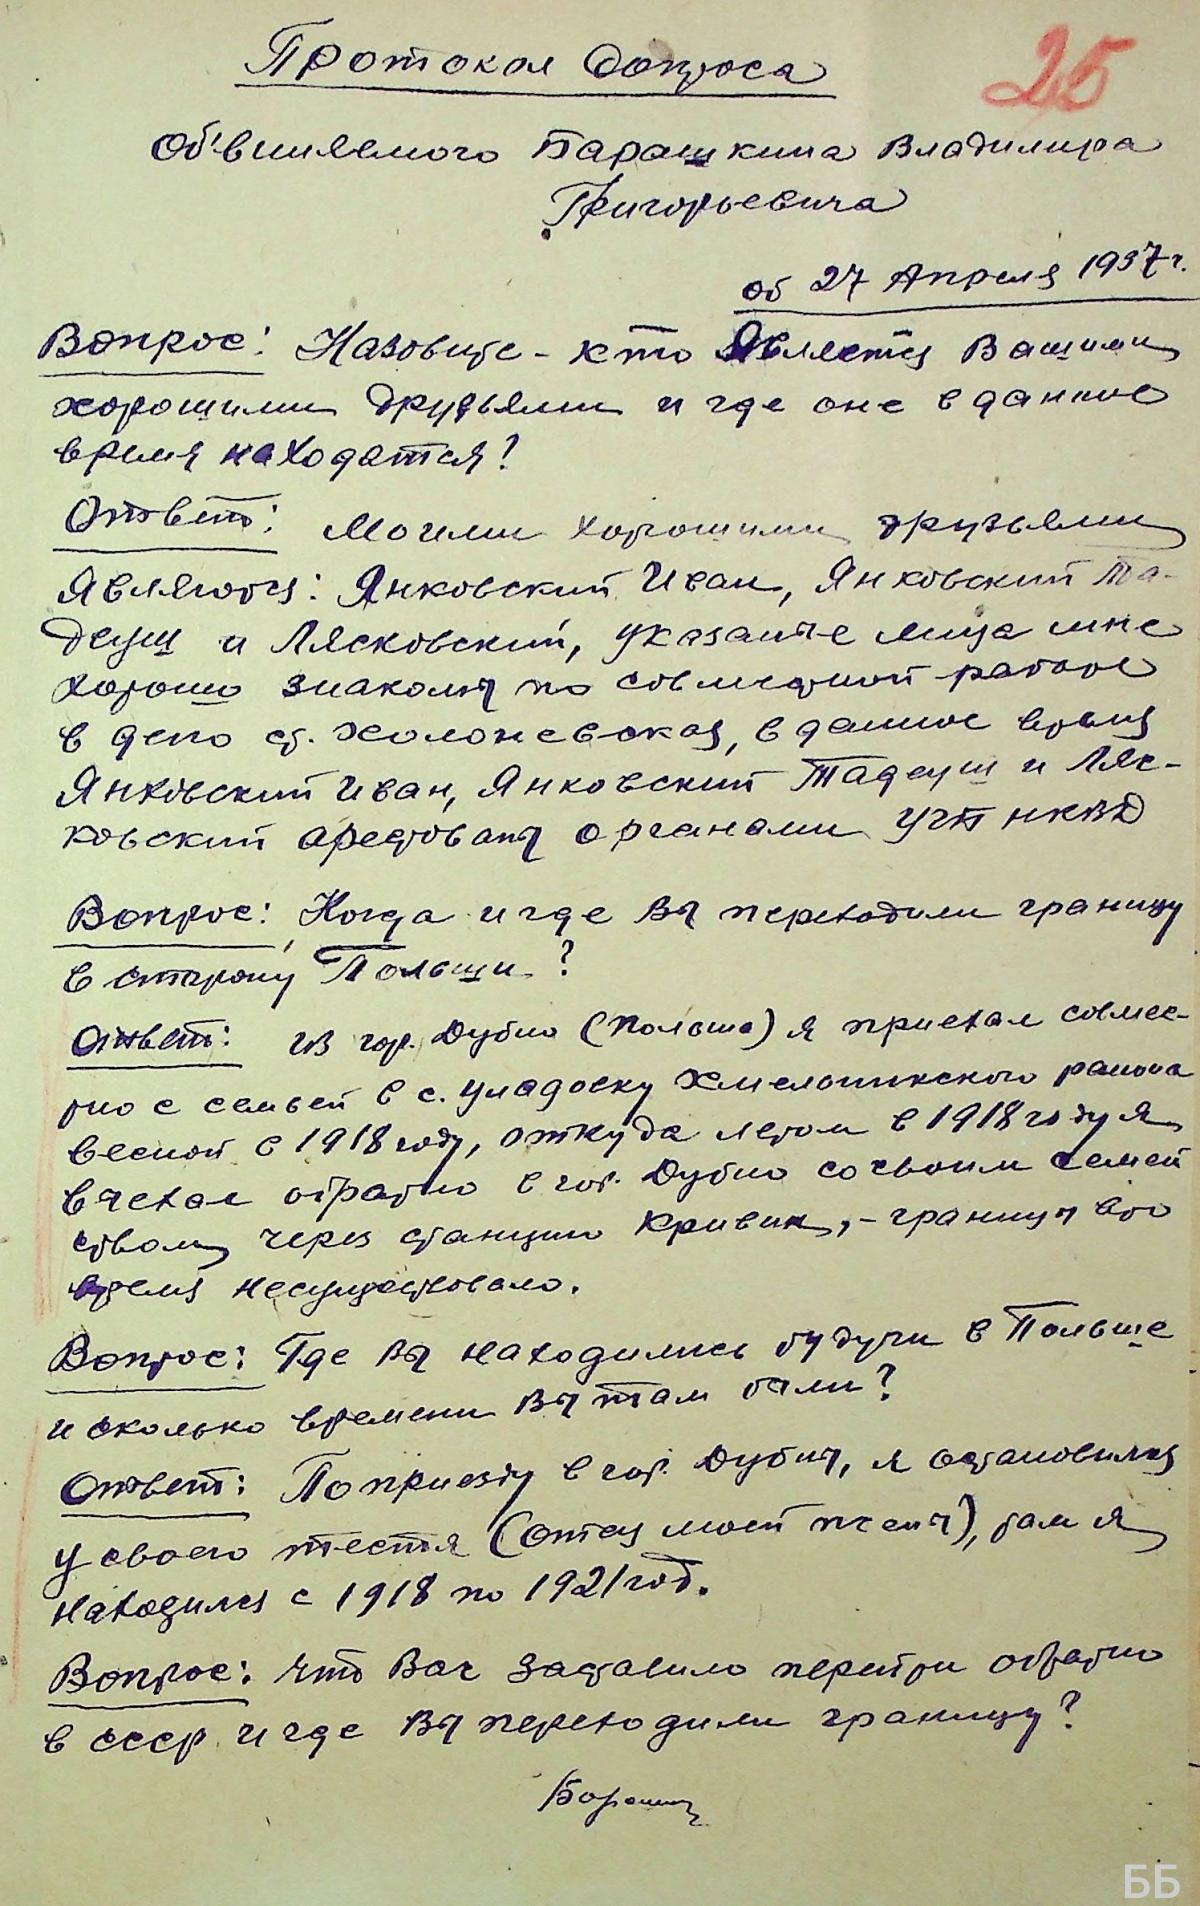 Протокол допроса
25
Об'виняемого Барашкина Владимира
Григорьевича
об 27 Апреля 1937 г.
Вопрос: Назовите - кто является Вашими
хорошими друзьями и где оне в данное
время находятся?
Ответ: Моими хорошими друзьями
являются: Янковский Иван, Янковский Та-
деуш и Лясковский, указаные лица мне
хорошо знакомы по совместной работе
в депо ст. Холоневская, в данное время
Янковский Иван, Янковский Тадеуш и Ляс-
ковский арестованы органами НКВД
Вопрос: Когда и где Вы переходили границу
в сторону Польши?
Ответ: из гор. Дубно (Польша) я приехал совмес-
тно с семьей в с. Уладовку Хмельникского района
весной в 1918 году, откуда летом в 1918 году я
выехал обратно в гор. Дубно со своим семей
ством через станцию Кривин, - границы в то
время несуществовало.
Вопрос: Где Вы находились будучи в Польше
и сколько времени Вы там были?
Ответ: По приезду в гор. Дубны, я остановился
у своего тестя (отец моей жены), там я
находился с 1918 по 1921 год.
Вопрос: Что Вас заставило перейти обратно
в СССР и где Вы переходили границу?
ББ